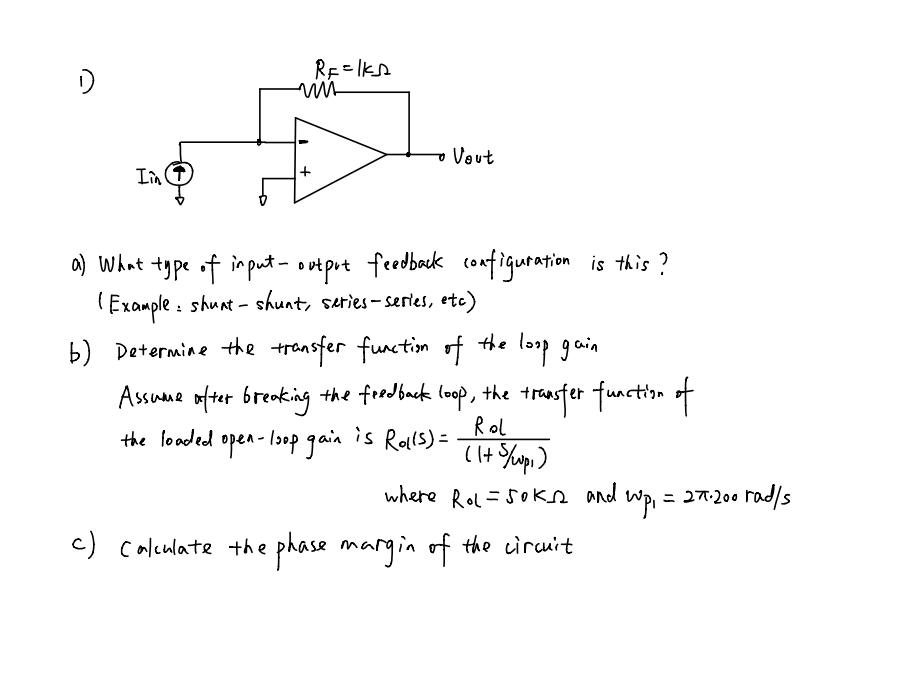 1)
R_F = 1kΩ
-
+
Iin
Vout
a) What type of input-output feedback configuration is this?
(Example: shunt-shunt, series-series, etc)
b) Determine the transfer function of the loop gain
Assume after breaking the feedback loop, the transfer function of
the loaded open-loop gain is R_OL(s) = R_OL / (1 + s/ω_P1)
where R_OL = 50KΩ and ω_P1 = 2π·200 rad/s
c) Calculate the phase margin of the circuit